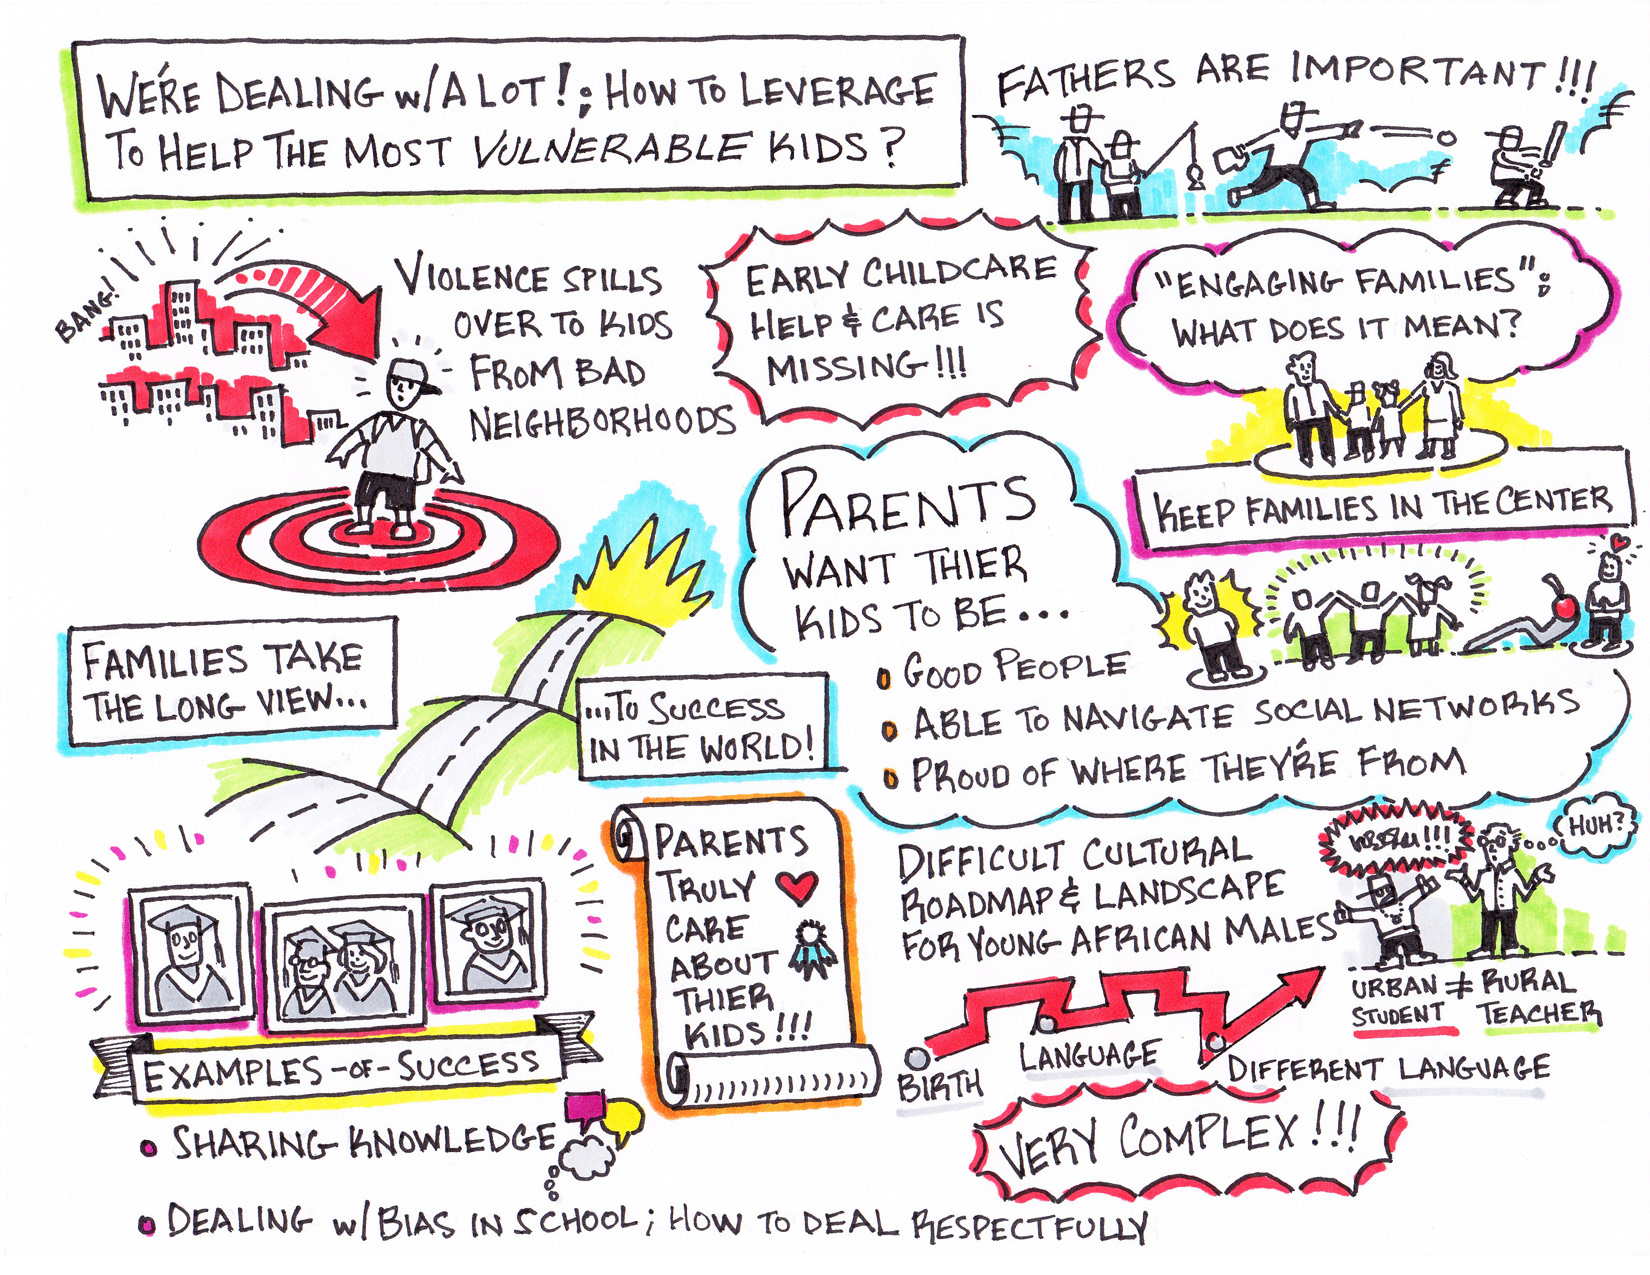 WE'RE DEALING w/A LOT!; HOW TO LEVERAGE
TO HELP THE MOST VULNERABLE KIDS?
FATHERS ARE IMPORTANT!!!
BANG!
VIOLENCE SPILLS
OVER TO KIDS
FROM BAD
NEIGHBORHOODS
EARLY CHILDCARE
HELP & CARE IS
MISSING!!!
"ENGAGING FAMILIES";
WHAT DOES IT MEAN?
KEEP FAMILIES IN THE CENTER
PARENTS
WANT THIER
KIDS TO BE...
GOOD PEOPLE
ABLE TO NAVIGATE SOCIAL NETWORKS
PROUD OF WHERE THEY'RE FROM
FAMILIES TAKE
THE LONG VIEW...
...TO SUCCESS
IN THE WORLD!
EXAMPLES -OF- SUCCESS
SHARING KNOWLEDGE
DEALING w/BIAS IN SCHOOL; HOW TO DEAL RESPECTFULLY
PARENTS
TRULY
CARE
ABOUT
THIER
KIDS!!!
DIFFICULT CULTURAL
ROADMAP & LANDSCAPE
FOR YOUNG AFRICAN MALES
HUH?
URBAN ≠ RURAL
STUDENT TEACHER
BIRTH
LANGUAGE
DIFFERENT LANGUAGE
VERY COMPLEX!!!